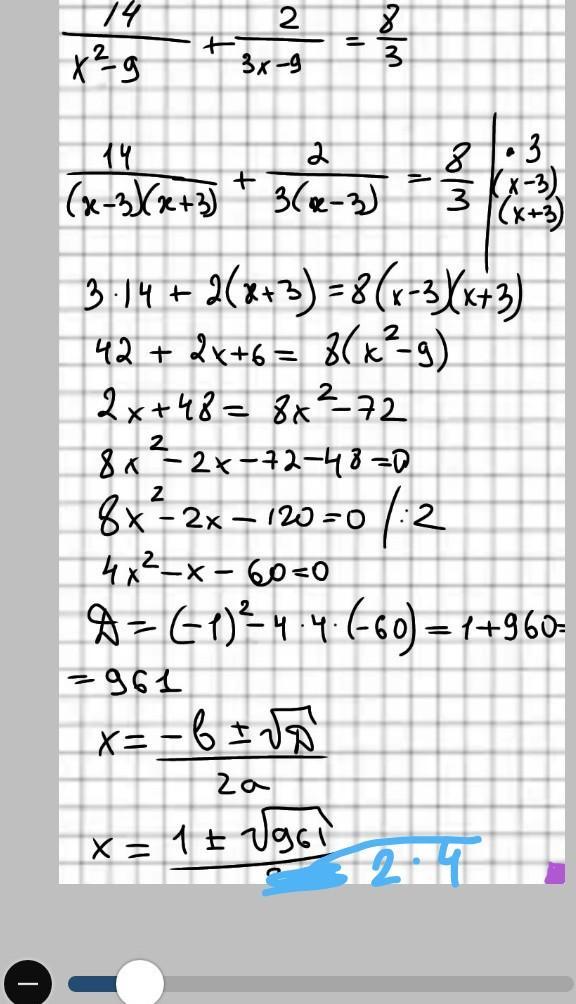 14/(x²-9) + 2/(3x-9) = 8/3
14/((x-3)(x+3)) + 2/(3(x-3)) = 8/3 | · 3 (x-3) (x+3)
3·14 + 2(x+3) = 8(x-3)(x+3)
42 + 2x+6 = 8(x²-9)
2x+48 = 8x²-72
8x²-2x-72-48=0
8x²-2x-120=0 /:2
4x²-x-60=0
D = (-1)²-4·4·(-60) = 1+960=
= 961
x = (-b ± √D)/(2a)
x = (1 ± √961)/(2·4)